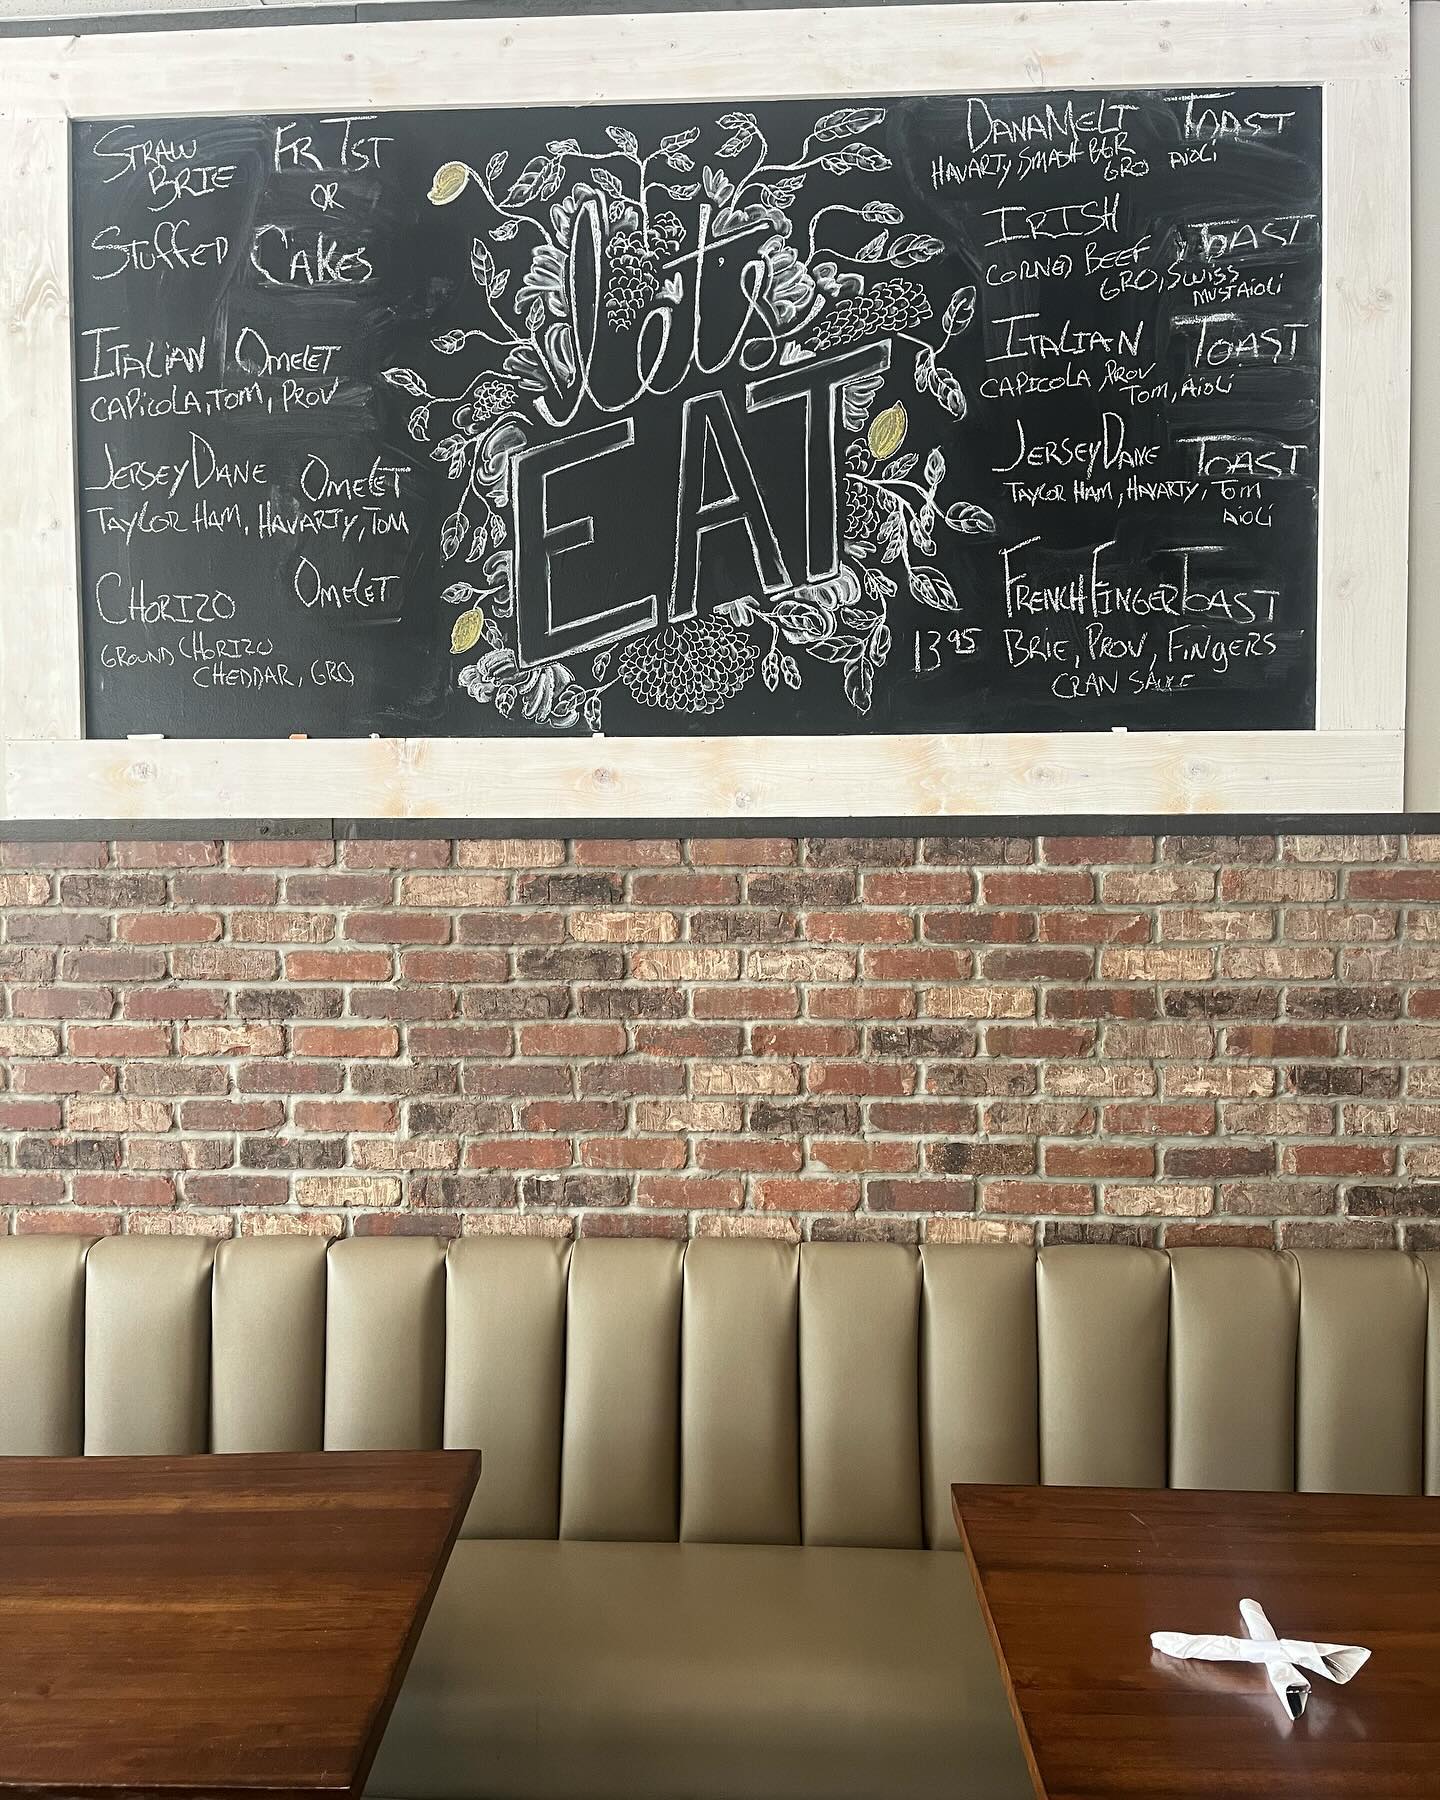 STRAW FR TST
BRIE OR
STUFFED CAKES
ITALIAN OMELET
CAPICOLA, TOM, PROV
JERSEY DANE OMELET
TAYLOR HAM, HAVARTY, TOM
CHORIZO OMELET
GROUND CHORIZO
CHEDDAR, GRO
let's
EAT
DANA MELT TOAST
HAVARTY, SMASH BGR AIOLI
GRO
IRISH TOAST
CORNED BEEF
GRO, SWISS
MUSTAIOLI
ITALIAN TOAST
CAPICOLA, PROV
TOM, AIOLI
JERSEY DANE TOAST
TAYLOR HAM, HAVARTY, TOM
AIOLI
FRENCH FINGER TOAST
13 95 BRIE, PROV, FINGERS
CRAN SAUCE